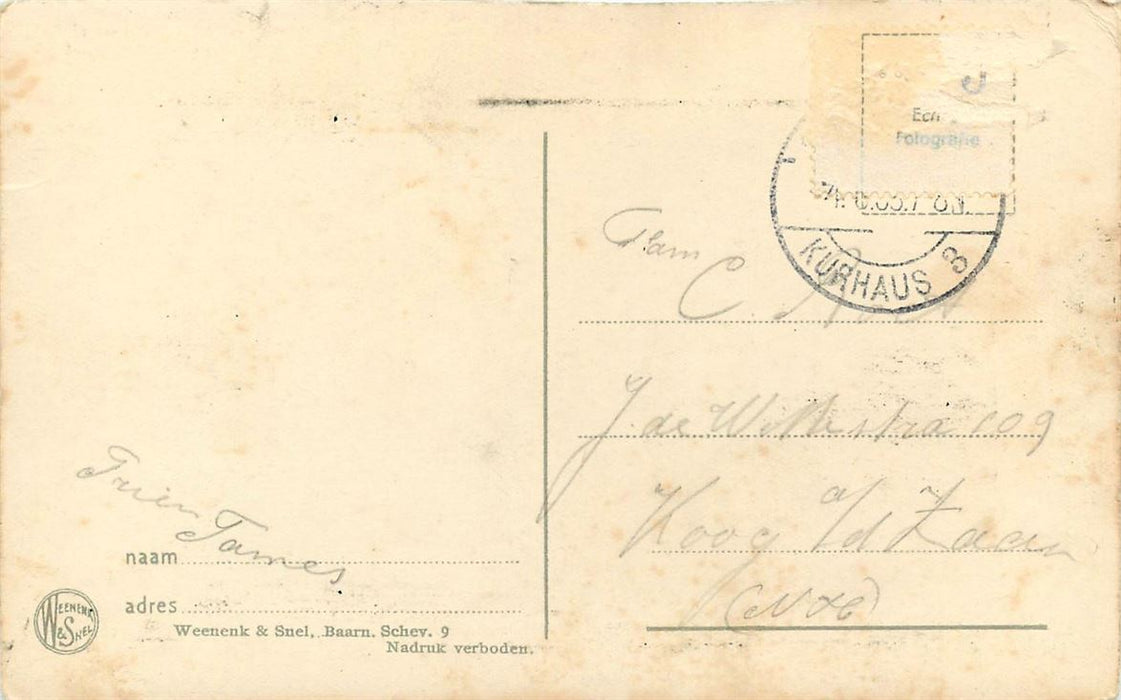 Fotografie
KURHAUS 8
Fam
C.
J. de Wittestra 109
Koog a/d Zaan
(N H)
Trien Tames
naam
adres
WEENENK & SNEL
Weenenk & Snel, Baarn. Schev. 9
Nadruk verboden.